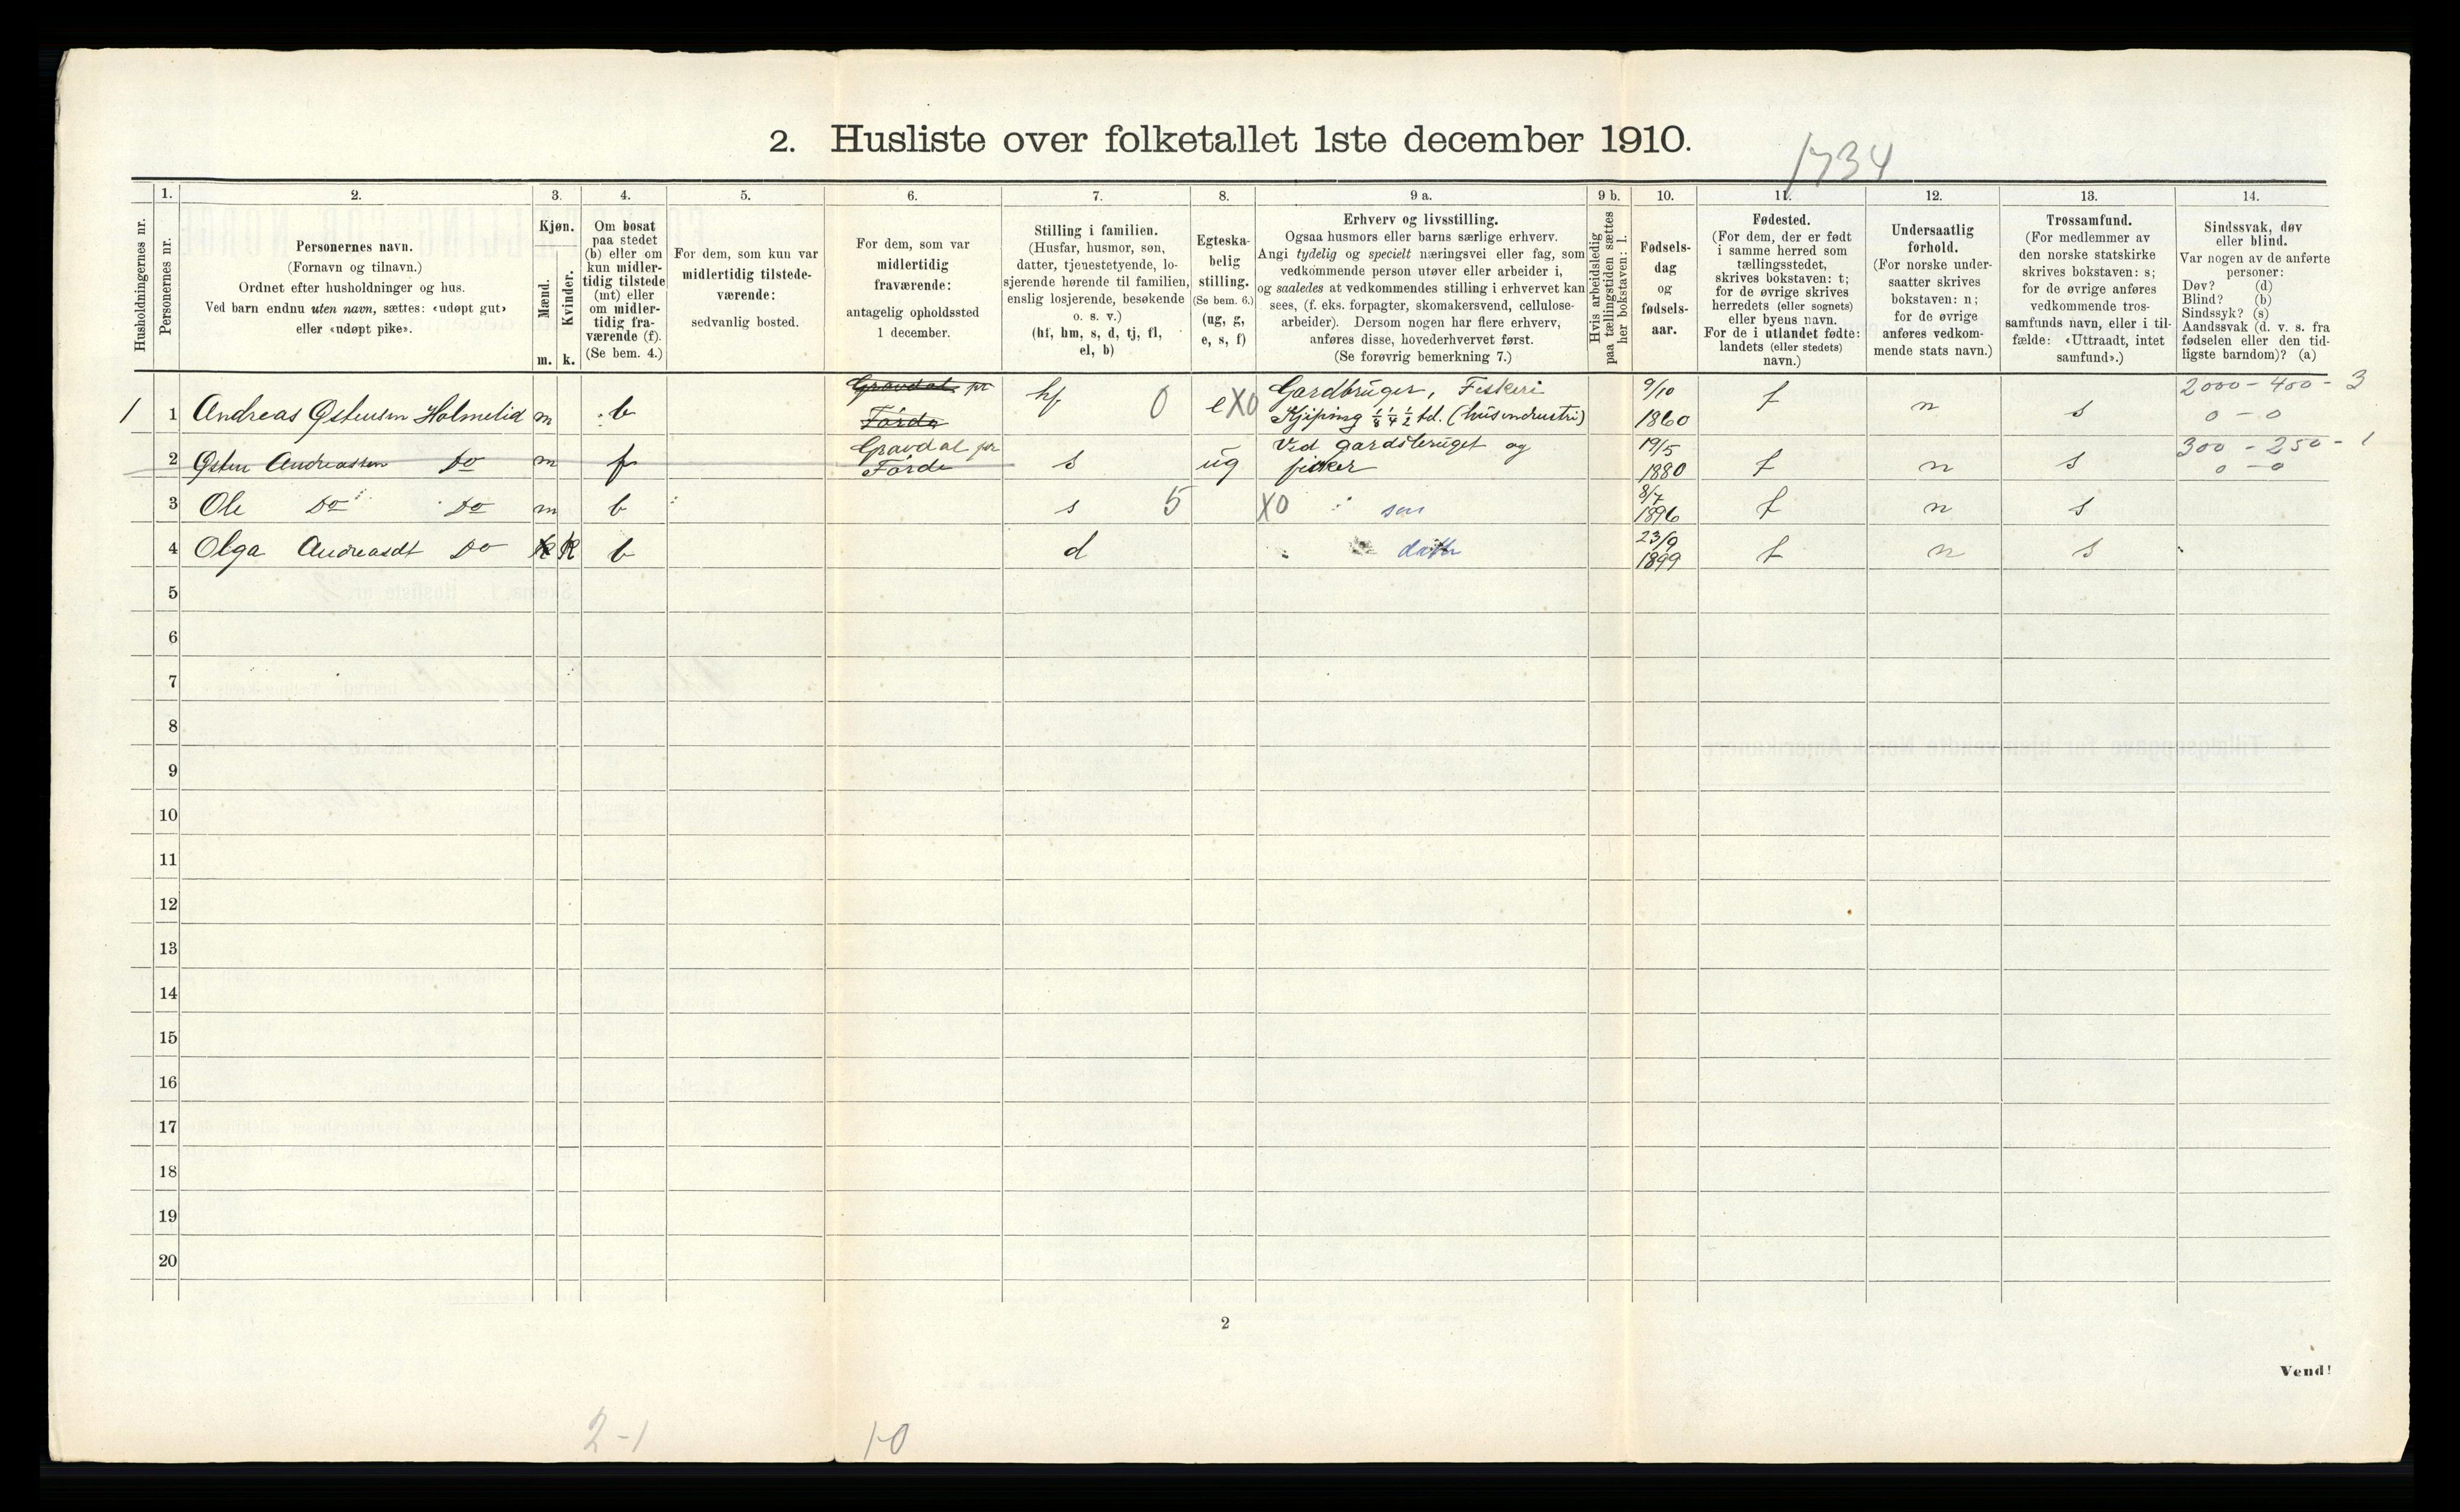 2. Husliste over folketallet 1ste december 1910.
1734
Husholdningernes nr.
1.
Personernes nr.
2.
Personernes navn.
(Fornavn og tilnavn.)
Ordnet efter husholdninger og hus.
Ved barn endnu uten navn, sættes: «udøpt gut»
eller «udøpt pike».
3.
Kjøn.
Mænd.
Kvinder.
m. k.
4.
Om bosat
paa stedet
(b) eller om
kun midler-
tidig tilstede
(mt) eller
om midler-
tidig fra-
værende (f).
(Se bem. 4.)
5.
For dem, som kun var
midlertidig tilstede-
værende:
sedvanlig bosted.
6.
For dem, som var
midlertidig
fraværende:
antagelig opholdssted
1 december.
7.
Stilling i familien.
(Husfar, husmor, søn,
datter, tjenestetyende, lo-
sjerende hørende til familien,
enslig losjerende, besøkende
o. s. v.)
(hf, hm, s, d, tj, fl,
el, b)
8.
Egteska-
belig
stilling.
(Se bem. 6.)
(ug, g,
e, s, f)
9 a.
Erhverv og livsstilling.
Ogsaa husmors eller barns særlige erhverv.
Angi tydelig og specielt næringsvei eller fag, som
vedkommende person utøver eller arbeider i,
og saaledes at vedkommendes stilling i erhvervet kan
sees, (f. eks. forpagter, skomakersvend, cellulose-
arbeider). Dersom nogen har flere erhverv,
anføres disse, hovederhvervet først.
(Se forøvrig bemerkning 7.)
9 b.
Hvis arbeidsledig
paa tællingstiden sættes
her bokstaven: l.
10.
Fødsels-
dag
og
fødsels-
aar.
11.
Fødested.
(For dem, der er født
i samme herred som
tællingsstedet,
skrives bokstaven: t;
for de øvrige skrives
herredets (eller sognets)
eller byens navn.
For de i utlandet fødte:
landets (eller stedets)
navn.)
12.
Undersaatlig
forhold.
(For norske under-
saatter skrives
bokstaven: n;
for de øvrige
anføres vedkom-
mende stats navn.)
13.
Trossamfund.
(For medlemmer av
den norske statskirke
skrives bokstaven: s;
for de øvrige anføres
vedkommende tros-
samfunds navn, eller i til-
fælde: «Uttraadt, intet
samfund».)
14.
Sindssvak, døv
eller blind.
Var nogen av de anførte
personer:
Døv? (d)
Blind? (b)
Sindssyk? (s)
Aandssvak (d. v. s. fra
fødselen eller den tid-
ligste barndom)? (a)
1 1 Andreas Østensen Holmelid m b Gravdal pr Førde hf 0 e X0 Gardbruger, Fiskeri 9/10 t n s 2000 - 400 - 3
Kjiping 1/8 1/4 1/2 td. (husindustri) 1860 0 - 0
2 Østen Andreassen Do m f Gravdal pr Førde s ug Ved gardsbruget og fisker 19/5 1880 t n s 300 - 250 - 1
0 - 0
3 Ole Do Do m b s 5 X0 søn 8/7 1896 t n s
4 Olga Andreasdt Do k b d datter 23/9 1899 t n s
5
6
7
8
9
10
11
12
13
14
15
16
17
18
19
20
2
Vend!
2-1 1-0